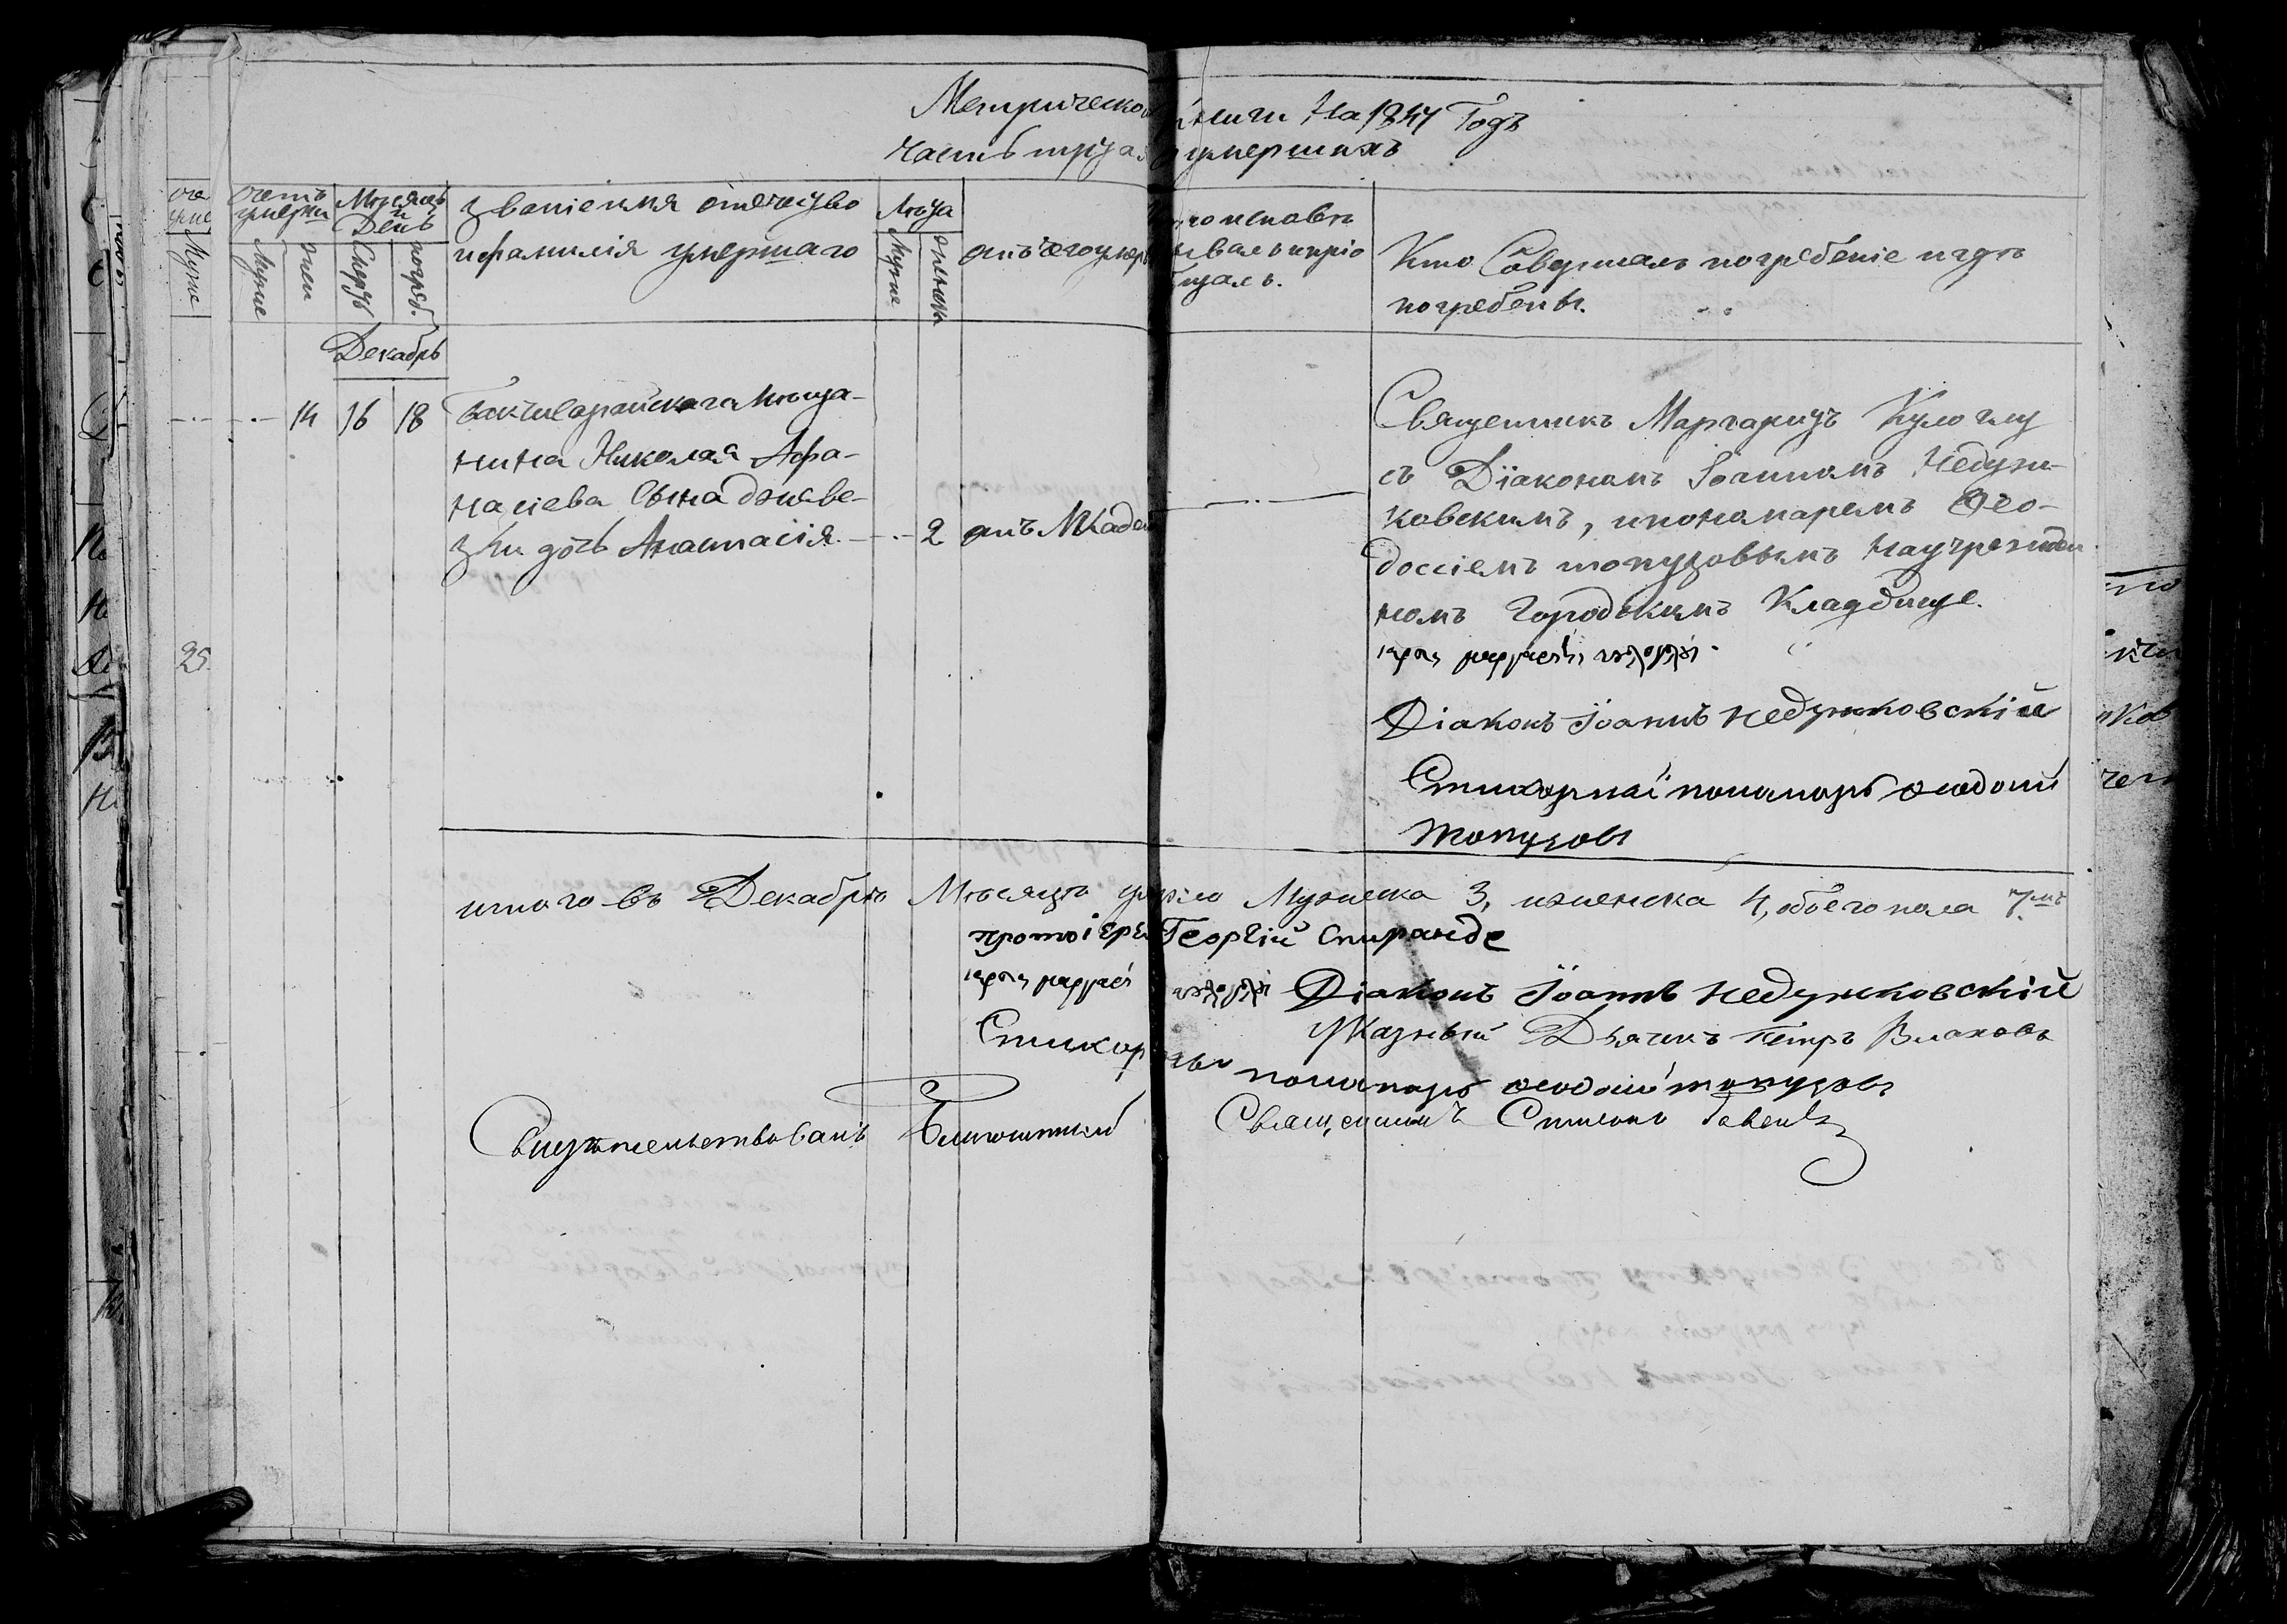 Метрической книги На 1844 Годъ
Часть третья о умершихъ
Счетъ умерши
Мужие
жен
Месяцъ и День
Смерт
погреб.
званіе имя отечество
ифамилія умершаго
Лета
Мужие
женска
отъ чего умеръ
кто исповѣ
дывалъ ипріо
бщалъ.
Кто Совершалъ погребеніе игдѣ
погребены.
Декабрь
14 16 18
Бакчисарайскага мѣща-
нина Николая Афа-
насіева Сына джеве-
зжи дочь Анастасія. 2 отъ
Священникъ Маргаритъ Кулоглу
съ Діакономъ Іоанномъ Недзи-
ковскимъ, ипономаремъ Ѳео-
досіемъ топузовымъ научрежден
номъ Городскимъ Кладбище.
Діаконъ Іоаннъ Недзиковскій
Стихарный пономарь Ѳеодосій
топузовъ
25
итого въ Декабрѣ Мѣсяцѣ умерло Мужеска 3, иженска 4, обоего пола 7мь
протоіерей Георгій Спиранде
Діаконъ Іоаннъ Недзиковскій
Указный Дьячекъ Петръ Влаховъ
Стихарный пономарь Ѳеодосій топузовъ
Свидѣтельствовалъ Благочинный Священникъ Стилианъ